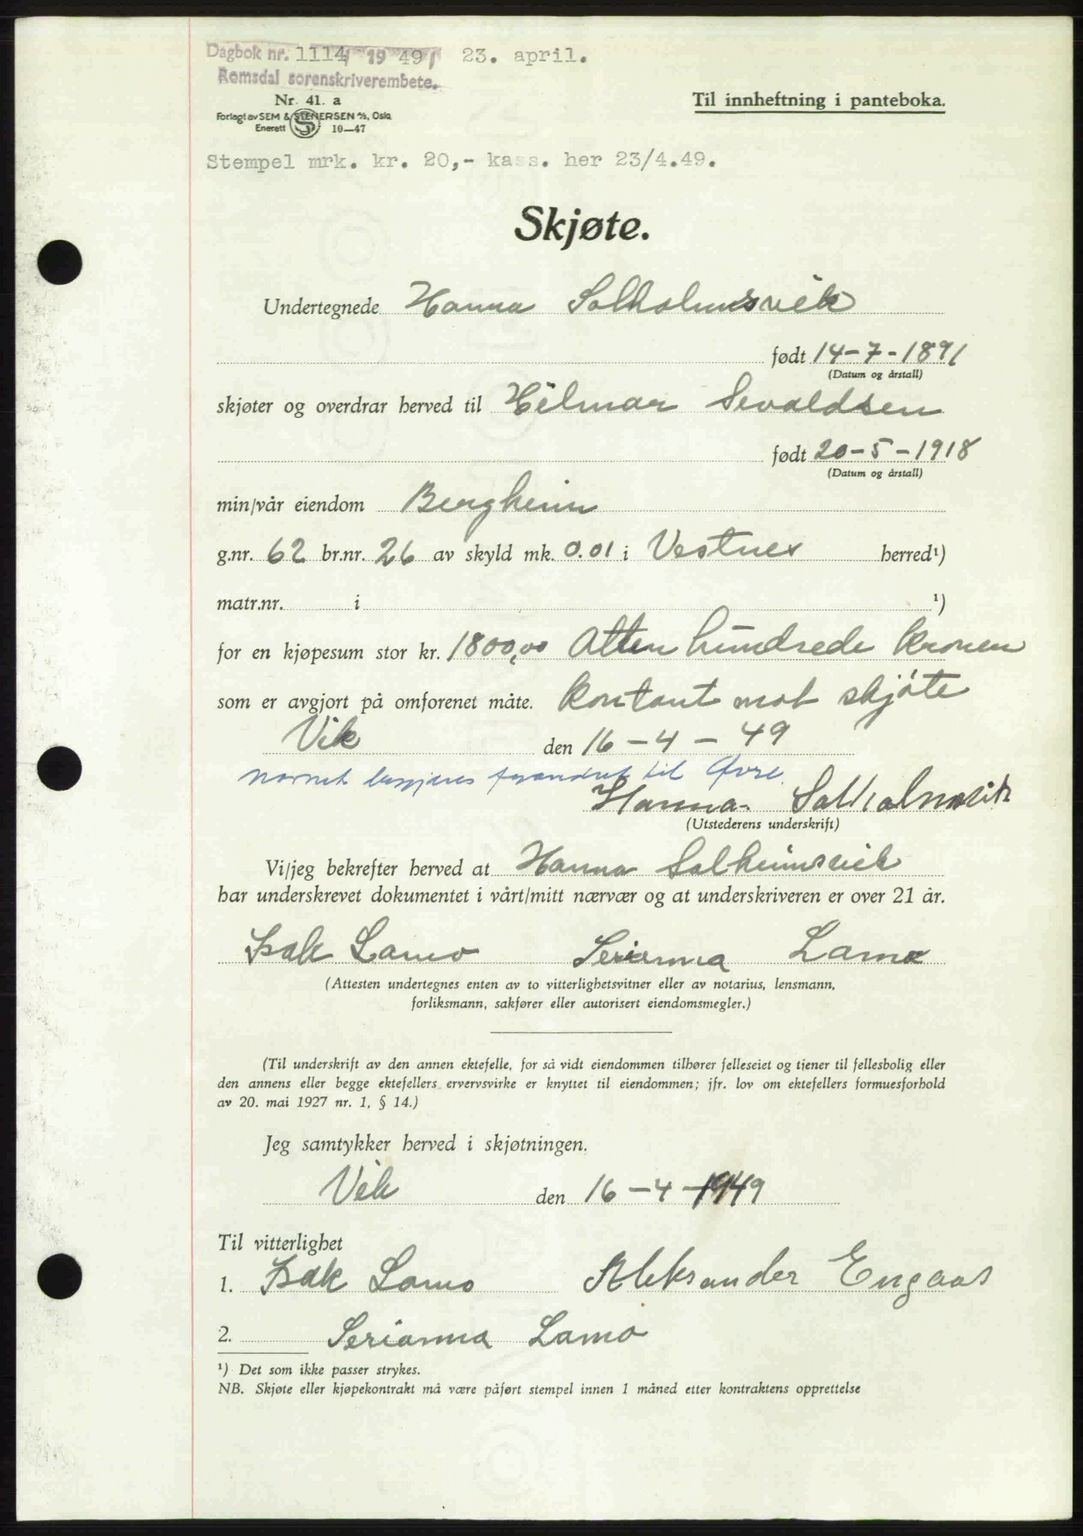 Dagbok nr. 1114 1949 23. april.
Romsdal sorenskriverembete.
Nr. 41. a
Til innheftning i panteboka.
Forlagt av SEM & STENERSEN A/S, Oslo
Enerett 10—47
Stempel mrk. kr. 20,- kass. her 23/4.49.
Skjøte.
Undertegnede Hanna Solholmsvik
født 14-7-1891
(Datum og årstall)
skjøter og overdrar herved til Hilmar Sevaldsen
født 20-5-1918
(Datum og årstall)
min/vår eiendom Bergheim
g.nr. 62 br.nr. 26 av skyld mk. 0.01 i Vestnes herred¹)
matr.nr. i ¹)
for en kjøpesum stor kr. 1800,00 Atten hundrede kroner
som er avgjort på omforenet måte. kontant mot skjøte
Vik den 16-4-49
navnet begjæres forandret til Øvre
Hanna Solholmsvik
(Utstederens underskrift)
Vi/jeg bekrefter herved at Hanna Solheimsvik
har underskrevet dokumentet i vårt/mitt nærvær og at underskriveren er over 21 år.
Isak Lamo Serianna Lamo
(Attesten undertegnes enten av to vitterlighetsvitner eller av notarius, lensmann,
forliksmann, sakfører eller autorisert eiendomsmegler.)
(Til underskrift av den annen ektefelle, for så vidt eiendommen tilhører felleseiet og tjener til fellesbolig eller
den annens eller begge ektefellers ervervsvirke er knyttet til eiendommen; jfr. lov om ektefellers formuesforhold
av 20. mai 1927 nr. 1, § 14.)
Jeg samtykker herved i skjøtningen.
Vik den 16-4-1949
Til vitterlighet
1. Isak Lamo Aleksander Engaas
2. Serianna Lamo
¹) Det som ikke passer strykes.
NB. Skjøte eller kjøpekontrakt må være påført stempel innen 1 måned etter kontraktens opprettelse